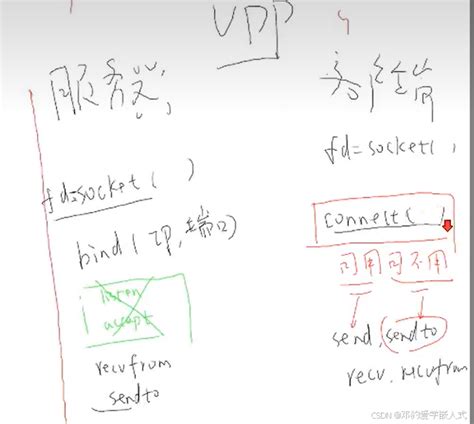 UDP
服务器;
fd=socket( )
bind(IP,端口)
listen
accept
recvfrom
sendto
客户端
fd=socket( ;
connect( )
可用 可不用
send, sendto
recv, recvfrom
CSDN @邓的爱学嵌入式